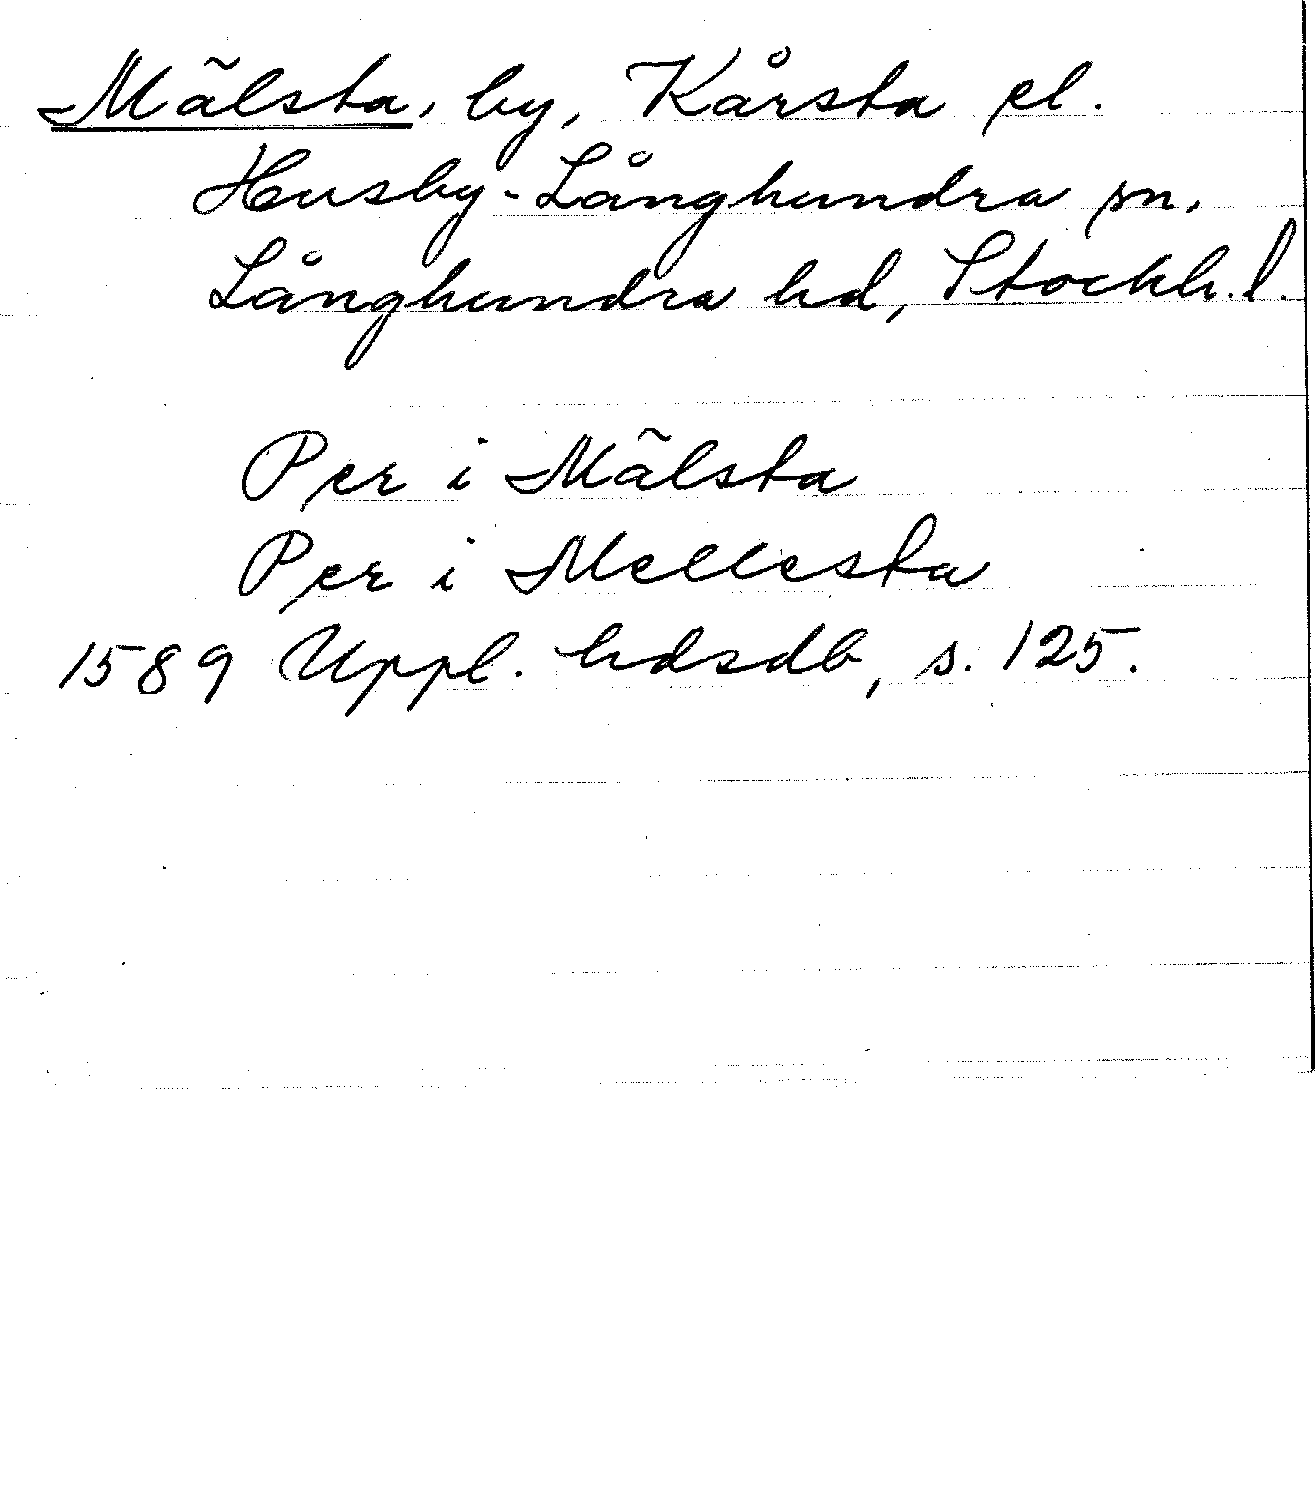 Mälsta, by, Kårsta el.
Husby-Långhundra sn,
Långhundra hd, Stockh. l.
Per i Mälsta
Per i Mellesta
1589 Uppl. hdsdb, s. 125.